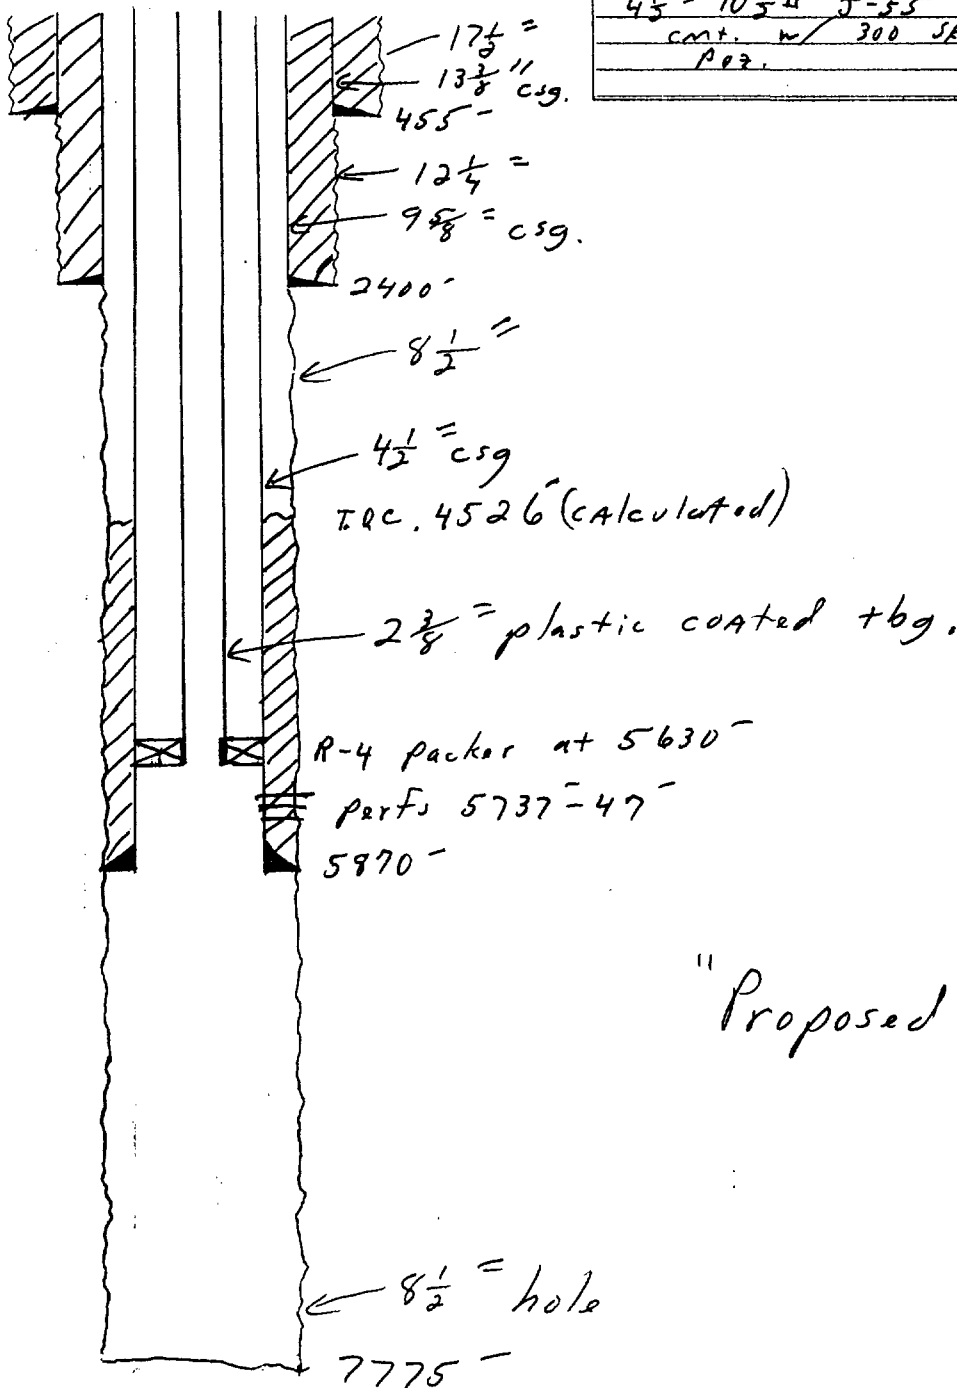 4½" 10.5# J-55
cmt. w/ 300
poz.
17½"
13⅜" csg.
455'
12¼"
9⅝" csg.
2400'
8½"
4½" csg
T.O.C. 4526' (calculated)
2⅜" plastic coated tbg.
R-4 packer at 5630'
perfs 5737'-47'
5870'
"Proposed
8½" hole
7775'